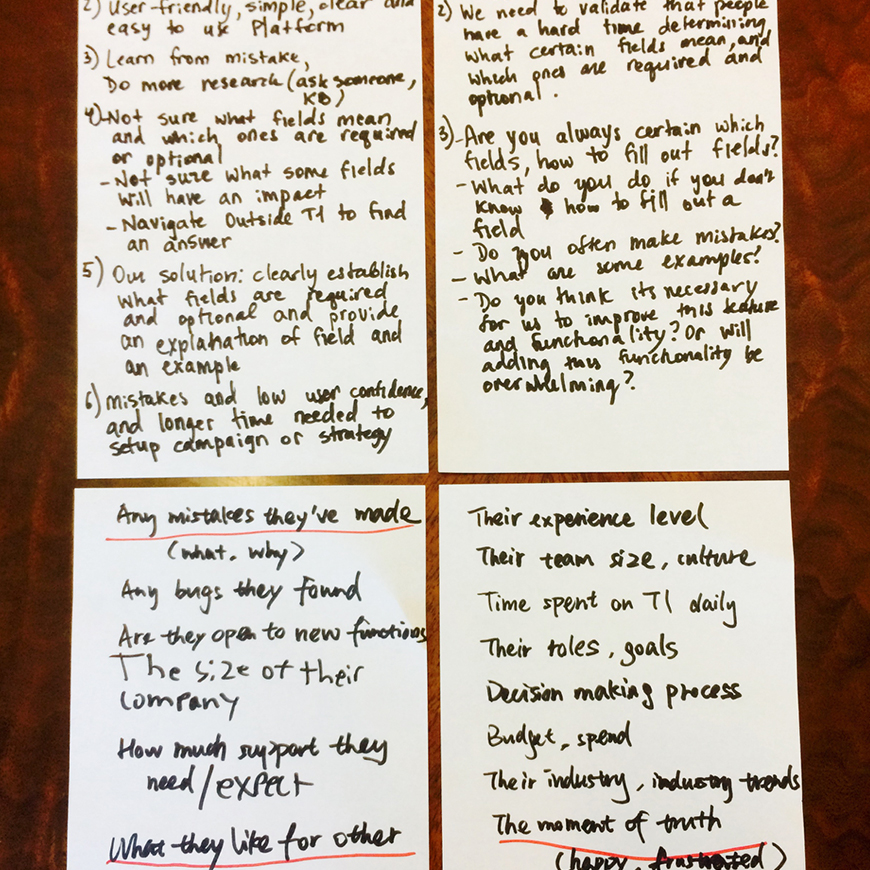 2) User-friendly, simple, clear and
easy to use Platform
3) Learn from mistake,
Do more research (ask someone,
KB)
4) - Not sure what fields mean
and which ones are required
or optional
- Not sure what some fields
will have an impact
- Navigate Outside T1 to find
an answer
5) Our solution: clearly establish
what fields are required
and optional and provide
an explanation of field and
an example
6) mistakes and low user confidence,
and longer time needed to
setup campaign or strategy
2) We need to validate that people
have a hard time determining
what certain fields mean, and
which ones are required and
optional.
3) - Are you always certain which
fields, how to fill out fields?
- What do you do if you don't
know how to fill out a
field
- Do you often make mistakes?
- What are some examples?
- Do you think its necessary
for us to improve this feature
and functionality? Or will
adding this functionality be
overwhelming?
Any mistakes they've made
(what, why)
Any bugs they found
Are they open to new functions
The size of their
company
How much support they
need/expect
What they like for other
Their experience level
Their team size, culture
Time spent on T1 daily
Their roles, goals
Decision making process
Budget, spend
Their industry, industry trends
The moment of truth
(happy, frustrated)